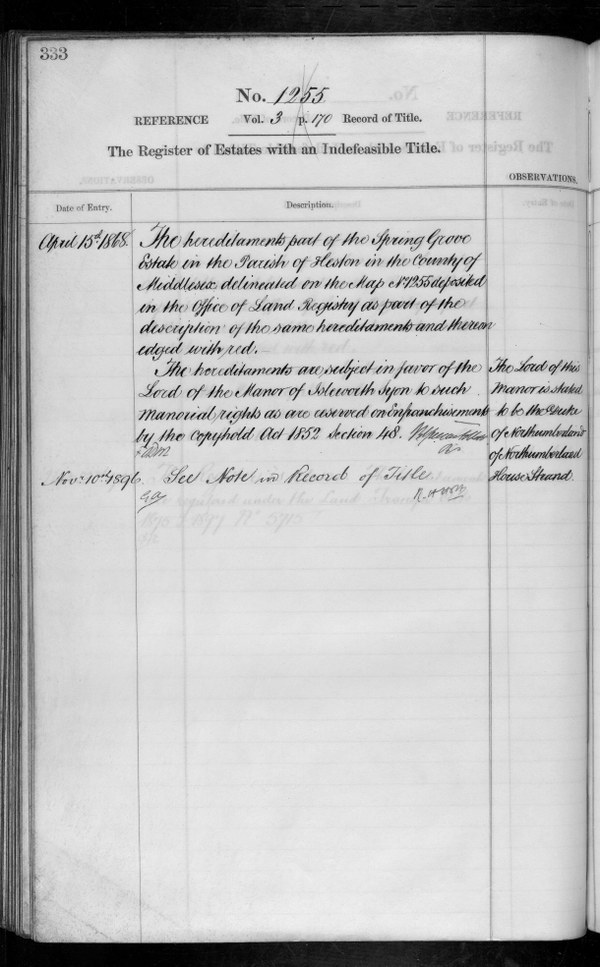 333
No. 1255
REFERENCE Vol. 3 p. 170 Record of Title.
The Register of Estates with an Indefeasible Title.
OBSERVATIONS.
Date of Entry.
Description.
April 15th 1868.
The hereditaments part of the Spring Grove
Estate in the Parish of Heston in the County of
Middlesex delineated on the Map No 1255 deposited
in the Office of Land Registry as part of the
description of the same hereditaments and thereon
edged with red.
The hereditaments are subject in favor of the
Lord of the Manor of Isleworth Syon to such
manorial rights as are reserved on Enfranchisement
by the Copyhold Act 1852 Section 48.
The Lord of this
Manor is stated
to be the Duke
of Northumberland
of Northumberland
House Strand.
Novr 10th 1896.
See Note in Record of Title